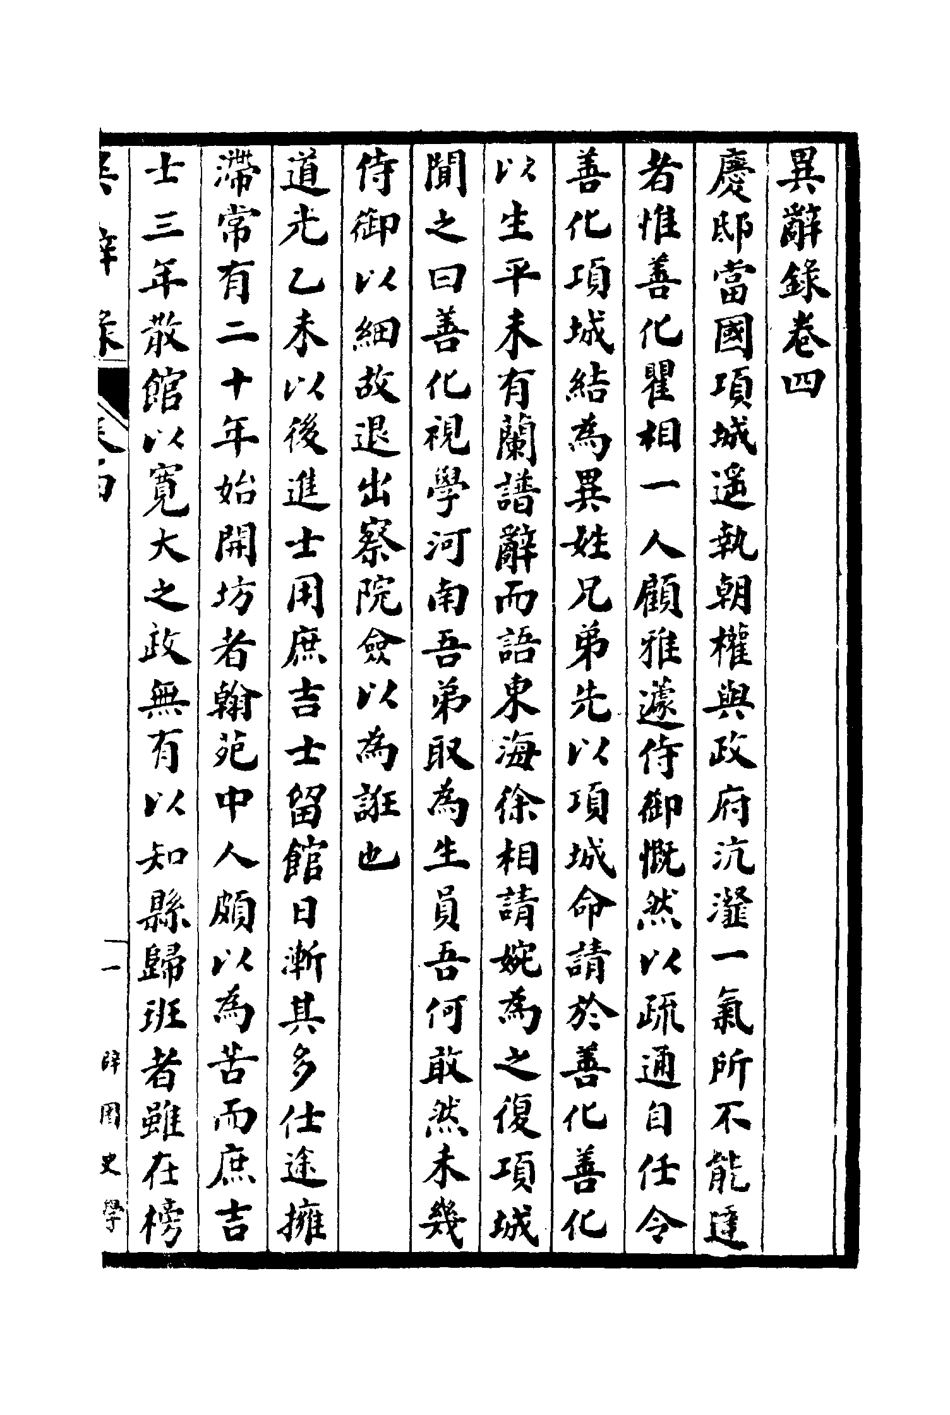 異辭錄卷四
慶邸當國項城遥執朝權與政府沆瀣一氣所不能達
者惟善化瞿相一人顧雅蘧侍御慨然以疏通自任令
善化項城結為異姓兄弟先以項城命請於善化善化
以生平未有蘭譜辭而語東海徐相請婉為之復項城
聞之曰善化視學河南吾弟取為生員吾何敢然未幾
侍御以細故退出察院僉以為誑也
道光乙未以後進士用庶吉士留館日漸其多仕途擁
滯常有二十年始開坊者翰苑中人頗以為苦而庶吉
士三年散館以寬大之政無有以知縣歸班者雖在榜
異辭錄 卷四 一 辟園史學